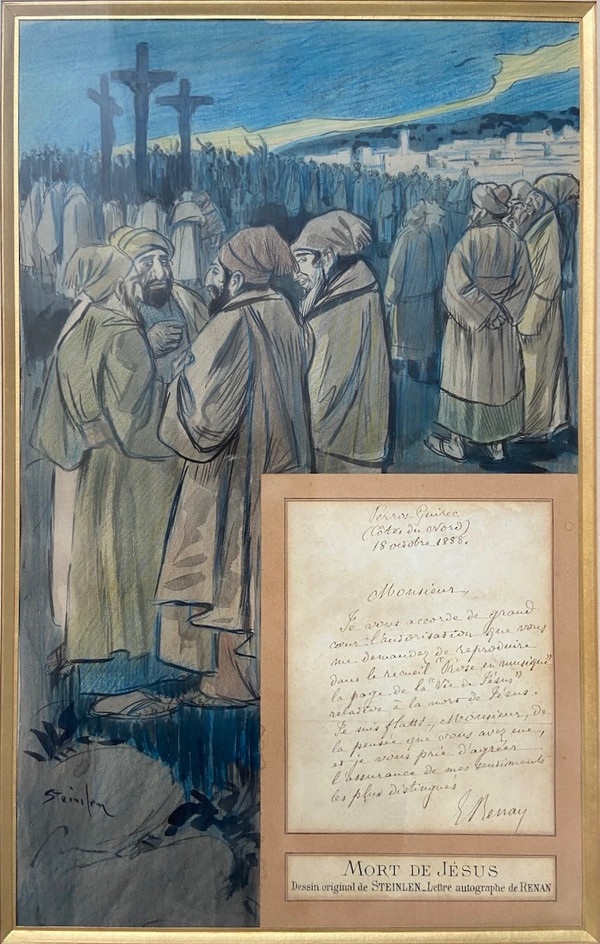 Steinlen
Perros-Guirec
(Côtes du Nord)
18 octobre 1888.
Monsieur,
Je vous accorde de grand
cœur l'autorisation que vous
me demandez de reproduire
dans le recueil "Prose en musique"
la page de la "Vie de Jésus"
relative à la mort de Jésus.
Je suis flatté, Monsieur, de
la pensée que vous avez eue,
et je vous prie d'agréer
l'assurance de mes sentiments
les plus distingués
E Renan
MORT DE JÉSUS
Dessin original de STEINLEN_Lettre autographe de RENAN